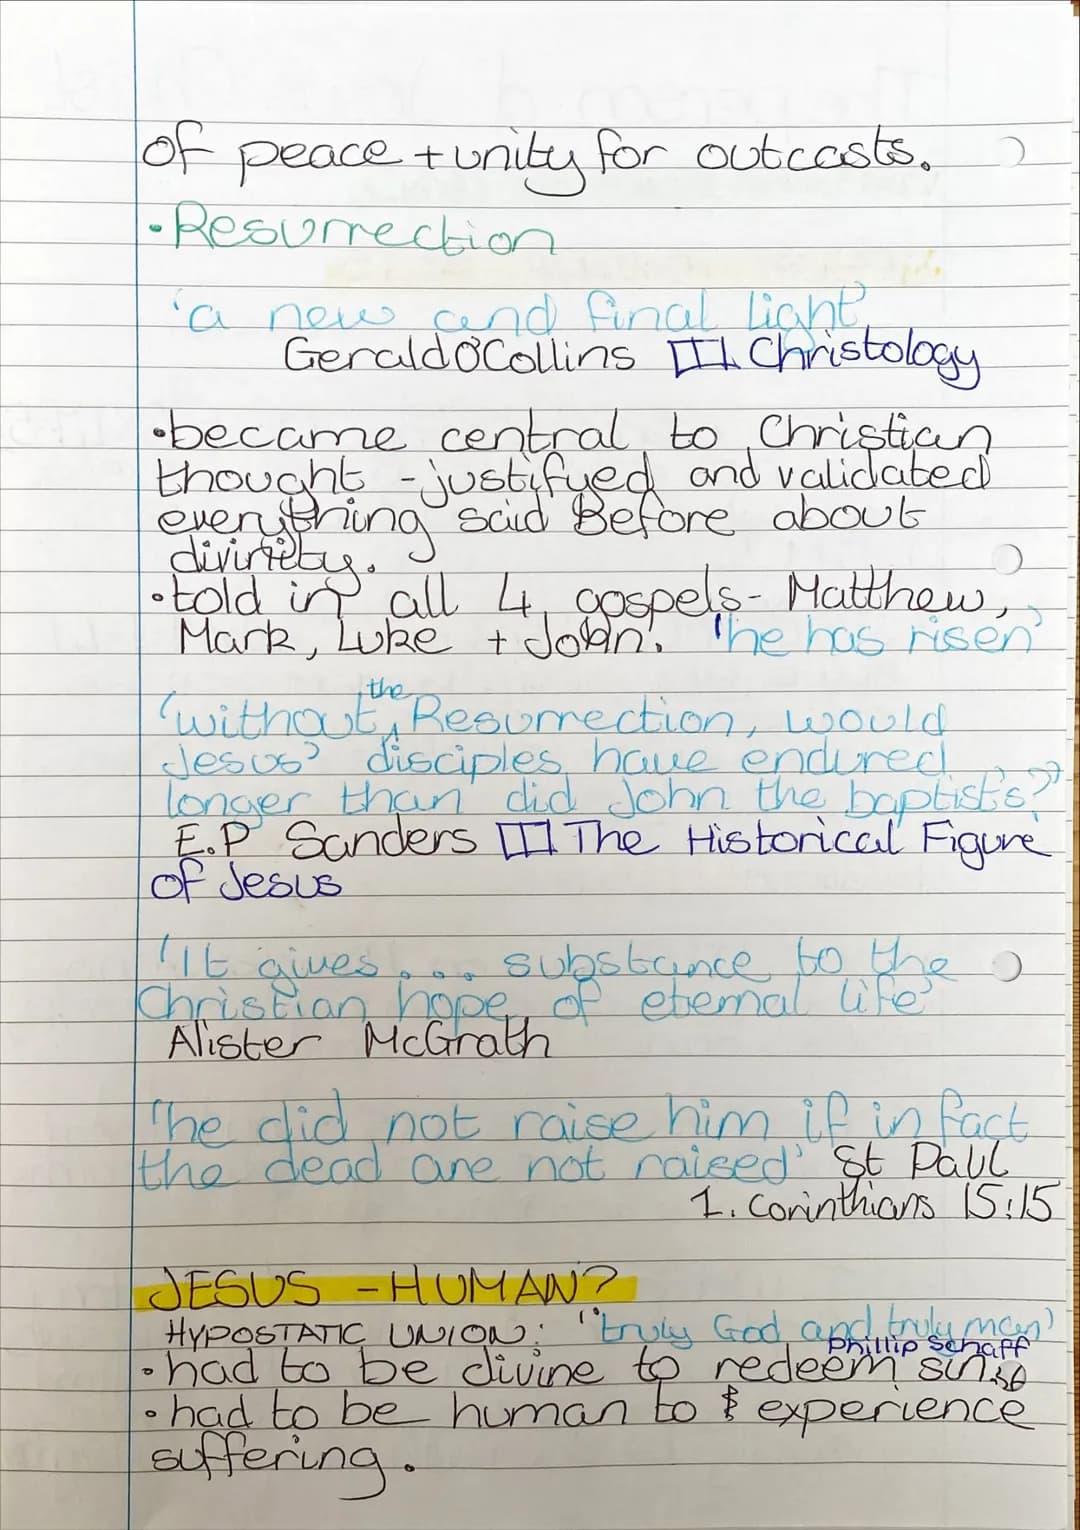 of peace + unity for outcasts.
• Resurrection
'a new and final light'
Gerald O'Collins Christology
• became central to Christian
thought - justifyed and validated
everything said Before about
divinity.
• told in all 4 gospels - Matthew,
Mark, Luke + John. 'he has risen'
'without the Resurrection, would
Jesus' disciples have endured
longer than did John the baptists?'
E.P Sanders The Historical Figure
of Jesus
'It gives... substance to the
Christian hope of eternal life'
Alister McGrath
'he did not raise him if in fact
the dead are not raised' St Paul
1. Corinthians 15:15
JESUS - HUMAN?
HYPOSTATIC UNION: "truly God and truly man'
Phillip Schaff
• had to be divine to redeem sin
• had to be human to experience
suffering.